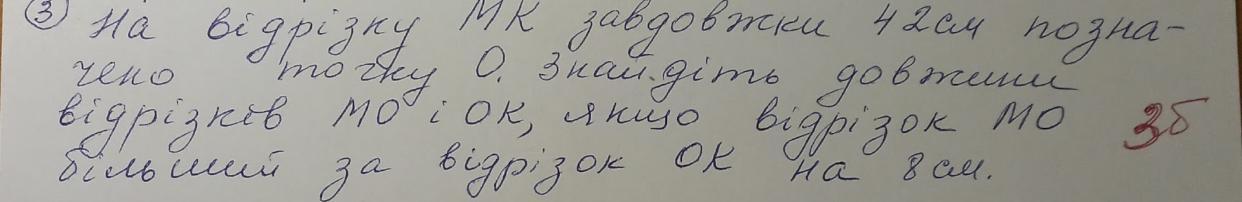 ③ На відрізку МК завдовжки 42см позна-
чено точку О. Знайдіть довжини
відрізків МО і ОК, якщо відрізок МО 3б
більший за відрізок ОК на 8см.